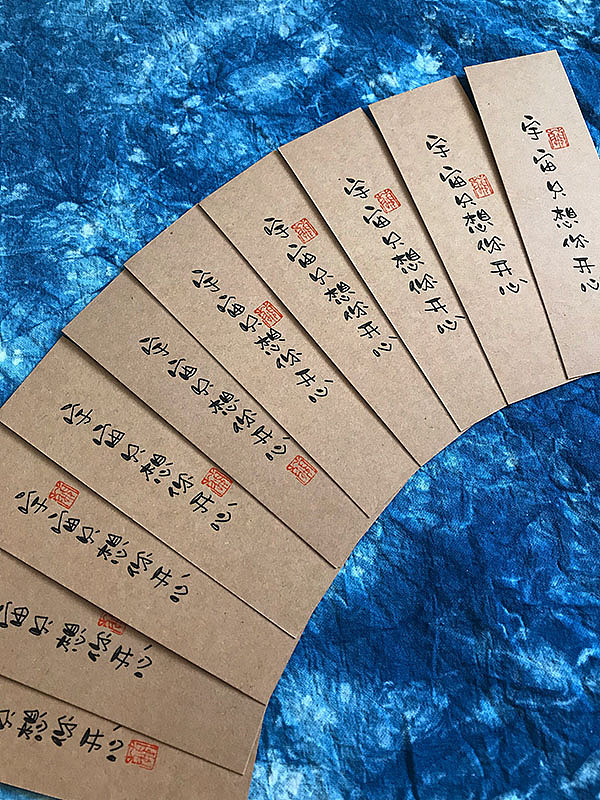 宇宙只想你开心
宇宙只想你开心
宇宙只想你开心
宇宙只想你开心
宇宙只想你开心
宇宙只想你开心
宇宙只想你开心
宇宙只想你开心
宙只想你开心
只想你开心